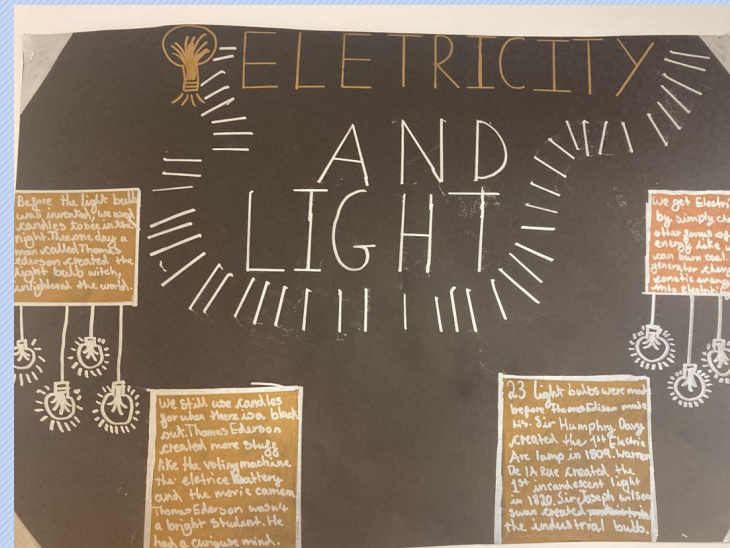 ELETRICITY
AND
LIGHT
Before the light bulb
was invented we used
candles to see in the
night. Then one day a
man called Thomas
ederson created the
light bulb witch,
enlightened the world.
We get Electri
by simply cha
other forms of
energy like
can burn coal.
generator chan
kenetic energy
into electricity
We still use candles
for when there is a black
out. Thomas Ederson
created more stuff
like the voting machine
the eletrice Battery
and the movie camera
Thomas Ederson wasn't
a bright student. He
had a curiouse mind.
23 light bulbs were made
before Thomas Edison made
his. Sir Humphry Davy
created the 1st Electric
Arc lamp in 1809. Warren
De lA Rue created the
1st incandescent light
in 1820. Sir Joseph wilson
swan created
the industrial bulb.